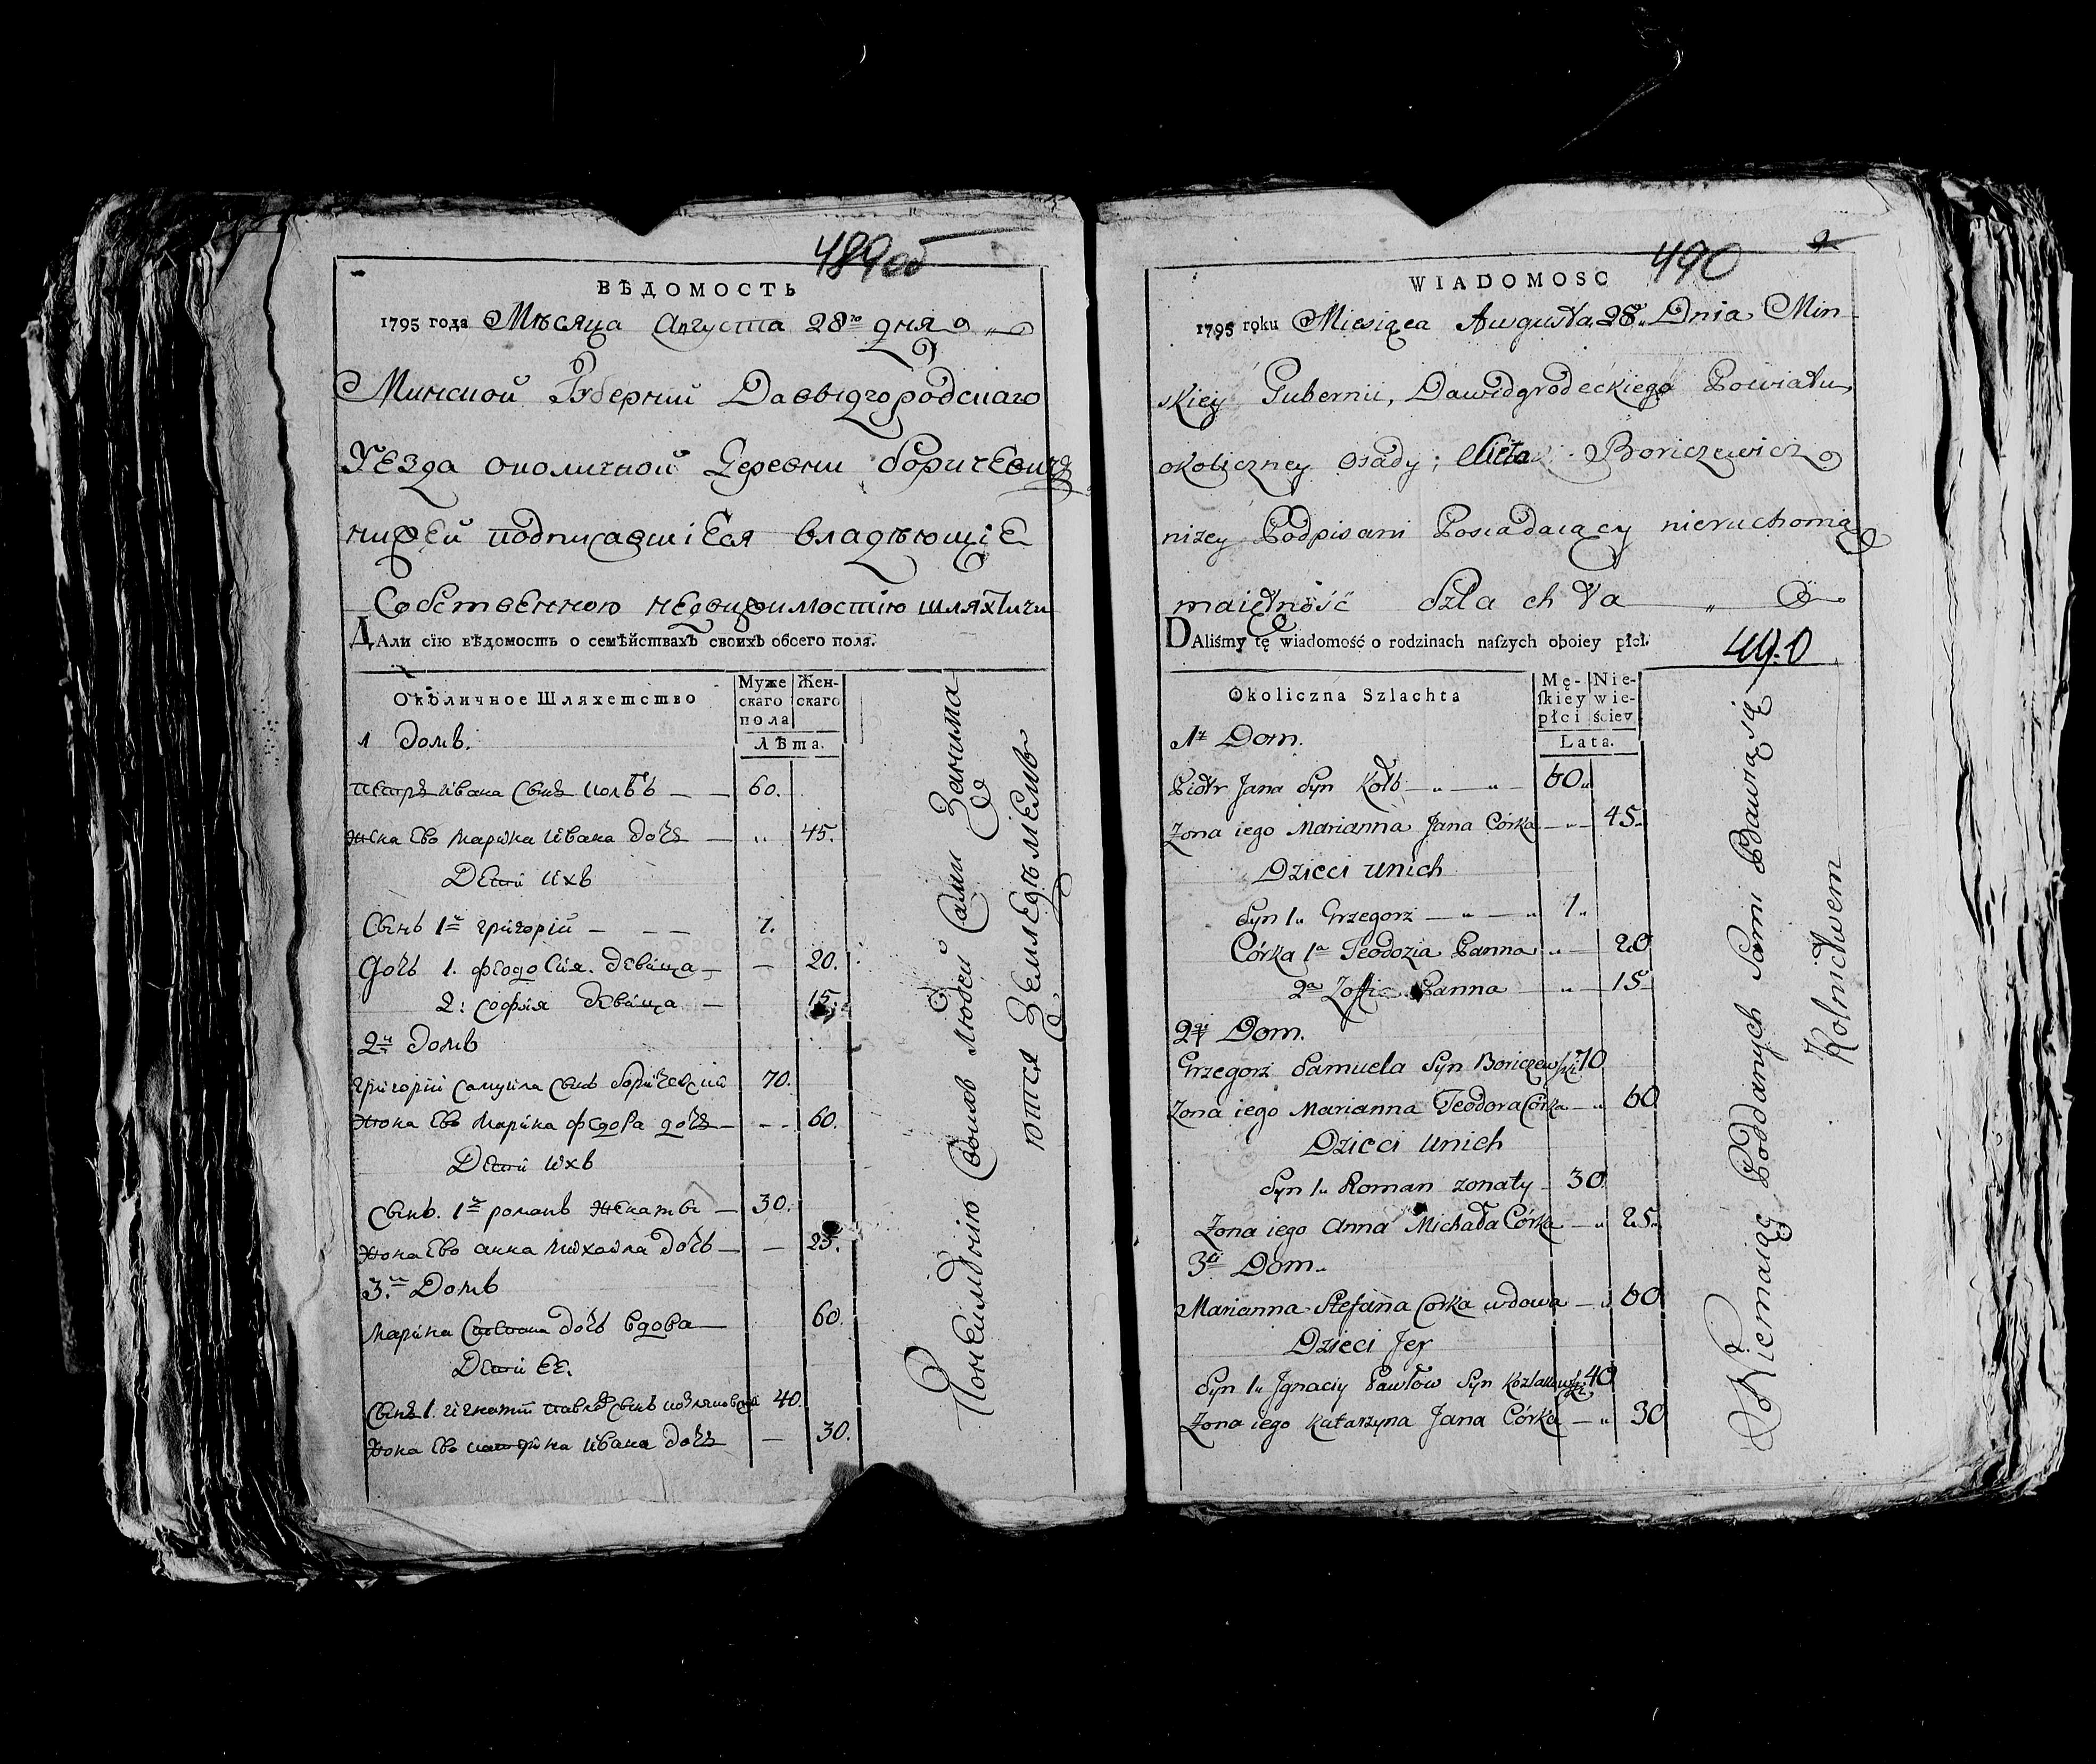 489об
ВѢДОМОСТЬ
1795 года Мѣсяца Августа 28го дня
Минской Губерніи Давыдгородскаго
Уезда околичной Деревни боричевичъ
нижей подписавшіеся владѣющіе
Собственною недвижимостію шляхтичи
ДАли сїю вѣдомость о семѣйствахъ своихъ обоего пола.
Околичное Шляхетство
Муже скаго пола
Жен- скаго
Лѣта.
1 домъ.
петръ ивана сынъ колбъ 60.
жена ево марина ивана дочь „ 45.
Дети ихъ
Сынъ 1й григорій 7.
Дочь 1. феодосия. девица 20.
2: софия девица 15.
2й домъ
григорий самуила сынъ боричевский 70.
жона ево марина федора дочь 60.
Дети ихъ
сынъ. 1й романъ женатъ 30.
жона ево анна михаила дочь 25.
3й Домъ
марина стефана дочь вдова 60.
Дети ее.
сынъ 1. игнатий павловъ сынъ козляковский 40.
жона ево катерина ивана дочь 30.
Понеимѣнію своихъ людей сами занима
ются Земледѣлиемъ
490
WIADOMOSC
1795 roku Miesiąca Augusta 28„ Dnia Min-
skiey Gubernii, Dawidgrodeckiego Powiatu,
okoliczney osady; Boriczewicz
niżey Podpisani Posiadaiący nieruchomią
maiętność Szlachta „
DAliśmy tę wiadomość o rodzinach naſzych oboiey płci.
490
Okoliczna Szlachta
Mę- ſkiey płci
Nie- wie- ściey
Lata.
1y Dom.
Piotr Jana Syn Kołb „ „ 60„
Zona iego Marianna Jana Córka „ 45
Dzieci unich
Syn 1„ Grzegorz „ „ 7„
Córka 1a Teodozia Panna „ 20
2a Zoffia Panna „ 15
2gi Dom.
Grzegorz Samuela Syn Boriczewski 70
Zona iego Marianna Teodora Córka „ 60
Dzieci unich
Syn 1„ Roman zonaty 30
Zona iego Anna Michała Córka „ 25„
3ci Dom„
Marianna Stefana Corka wdowa „ 60
Dzieci Jey
Syn 1„ Jgnaciy Pawłow Syn Kozlakowski 40
Zona iego Katarzyna Jana Córka „ 30
Niemaiąc Poddanych Sami Bawią się
Rolnictwem